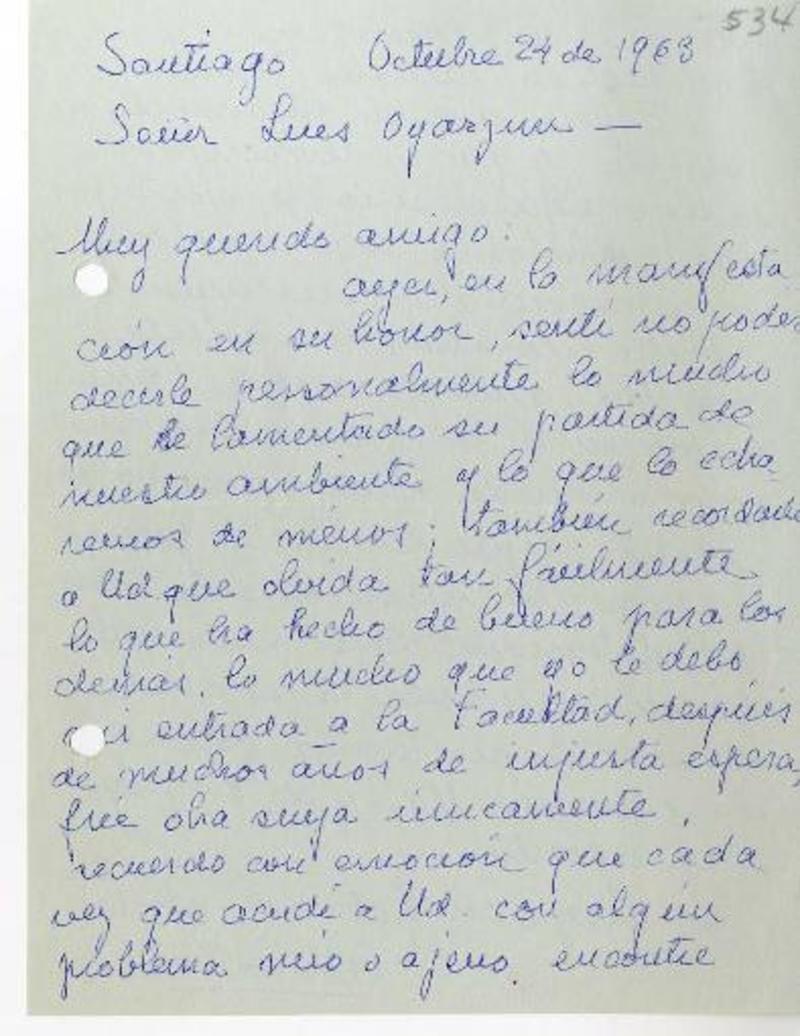 534
Santiago Octubre 24 de 1963
Señor Lues Oyarzun —
Muy querido amigo:
ayer, en la manifesta
ción en su honor, sentí no poder
decirle personalmente lo mucho
que he lamentado su partida de
nuestro ambiente y lo que lo echa
remos de menos; también recordarle
a Ud que olvida tan fácilmente
lo que ha hecho de bueno para los
demás, lo mucho que yo le debo
mi entrada a la Facultad, después
de muchos años de injusta espera,
fué obra suya únicamente,
recuerdo con emoción que cada
vez que acudí a Ud. con algún
problema mío o ajeno encontré